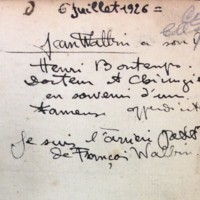 6 juillet 1926 =
Jean Walbin à son
Henri Bontemps.
Docteur & Chirurgien
en souvenir d'un
fameux appendicite
Je suis l'arrière
de François Walbin